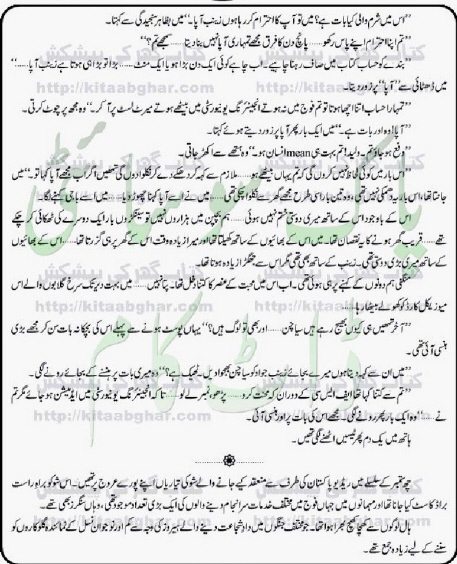 "اس میں شرم والی کیا بات ہے؟ میں تو آپ کا احترام کر رہا ہوں زینب آپا۔" میں بظاہر سنجیدگی سے کہتا۔
"تم اپنا احترام اپنے پاس رکھو...... پانچ دن کا فرق مجھے تمہاری آپا نہیں بنا دیتا...... سمجھے تم؟"
"بندے کو حساب کتاب میں صاف رہنا چاہیے۔ اب چاہے کوئی ایک دن بڑا ہو یا ایک منٹ...... بڑا تو بڑا ہی ہوتا ہے زینب آپا......"
میں ڈھٹائی سے "آپا" پر زور دیتا۔
"تمہارا حساب اتنا اچھا ہوتا تو تم فوج میں نہ ہوتے انجینئرنگ یونیورسٹی میں بیٹھے ہوتے میرٹ لسٹ پر آ کر۔" وہ مجھ پر چوٹ کرتی۔
"آپا! وہ اور بات ہے۔" میں ایک بار پھر آپا پر زور دیتے ہوئے کہتا۔
"دفع ہو جاؤ تم۔ ولید! تم بہت ہی mean انسان ہو۔" وہ ہتھے سے اکھڑ جاتی۔
"اس بار میں کوئی لحاظ نہیں کروں گی کہ تم یہاں بیٹھے ہو...... ملازم سے کہہ کر دھکے دے کر نکلوا دوں گی تمہیں اگر اب مجھے آپا کہا تو۔" میں
جانتا تھا، اس بار یہ دھمکی نہیں تھی، وہ تین بار اسی طرح مجھے گھر سے نکلوا چکی تھی...... میں نے اسے آپا کہنا چھوڑ دیا...... میں اسے باجی کہنے لگا۔
اس کے باوجود اس کے ساتھ میری دوستی ختم نہیں ہوئی...... ہم بچپن میں ہزاروں نہیں تو سینکڑوں بار ایک دوسرے کی ٹھکائی کر چکے
تھے...... قریب گھر ہونے کا یہ نقصان تھا۔ میں اس کے بھائیوں کے ساتھ کھیلتا تھا اور میرا زیادہ وقت اس کے گھر پر ہی گزرتا تھا...... اس کے بھائیوں
کے ساتھ میری بڑی دوستی تھی۔ زینب کے ساتھ بھی تھی مگر اس سے جھگڑا زیادہ ہوتا تھا۔
منگنی ہم دونوں کے کہنے پر ہی ہوئی تھی۔ اب اس میں محبت کے عنصر کا کتنا دخل تھا۔ پتا نہیں...... میں بہت دیر تک سرخ گلابوں والے اس
میوزیکل کارڈ کو کھولے بیٹھا رہا......
"آخر تمہیں ہی کیوں بھیج رہے ہیں سیاچن...... اور بھی تو لوگ ہیں؟" یہاں پوسٹ ہونے سے پہلے اس کی بچگانہ بات سن کر مجھے بڑی
ہنسی آئی تھی۔
"میں ان سے کہہ دیتا ہوں میرے بجائے زینب جواد کو سیاچن بھجوا دیں۔ ٹھیک ہے؟" وہ میری بات پر ہنسنے کے بجائے رونے لگی۔
"تم سے کتنا کہا تھا ایف ایس سی کے دوران کہ محنت کرو...... پڑھو، نمبر لے لو...... تاکہ انجینئرنگ یونیورسٹی میں ایڈمیشن ہو جائے مگر تم
نے......" وہ ایک بار پھر رونے لگی۔ مجھے اس کی بات پر اور ہنسی آئی۔
ہاتھ میں یک دم پھر ٹیسیں اٹھنے لگی تھیں۔
چھ ستمبر کے سلسلے میں ریڈیو پاکستان کی طرف سے منعقد کیے جانے والے شو کی تیاریاں اپنے پورے عروج پر تھیں۔ اس شو کو براہ راست
براڈ کاسٹ کیا جانا تھا اور مہمانوں میں جہاں فوج میں مختلف خدمات سر انجام دینے والوں کی ایک بڑی تعداد موجود تھی، وہاں سنگرز بھی تھے۔
ہال لوگوں سے کھچا کھچ بھرا ہوا تھا۔ جو مختلف جنگوں میں داد شجاعت دینے والے ہیروز کی وجہ سے کم اور نوجوان نسل کے نمائندہ گلوکاروں کو
سننے کے لیے زیادہ جمع تھے۔
کتاب گھر کی پیشکش
http://kitaabghar.com
پاک سوسائٹی
ڈاٹ کام